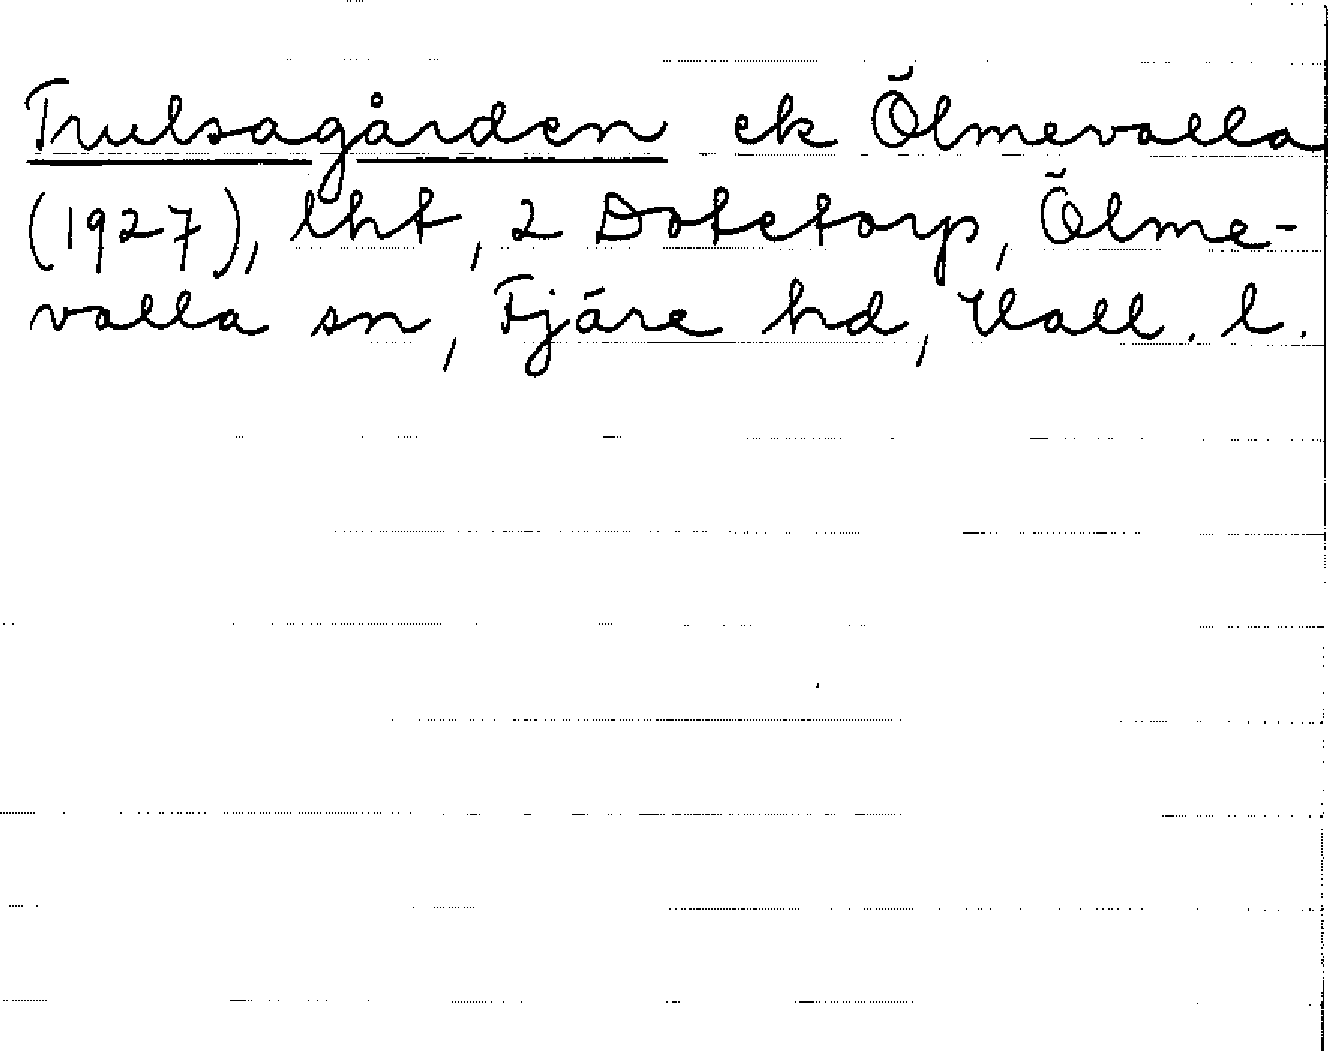 Trulsagården ek Ölmevalla
(1927), lht, 2 Dotetorp, Ölme-
valla sn, Fjäre hd, Hall. l.